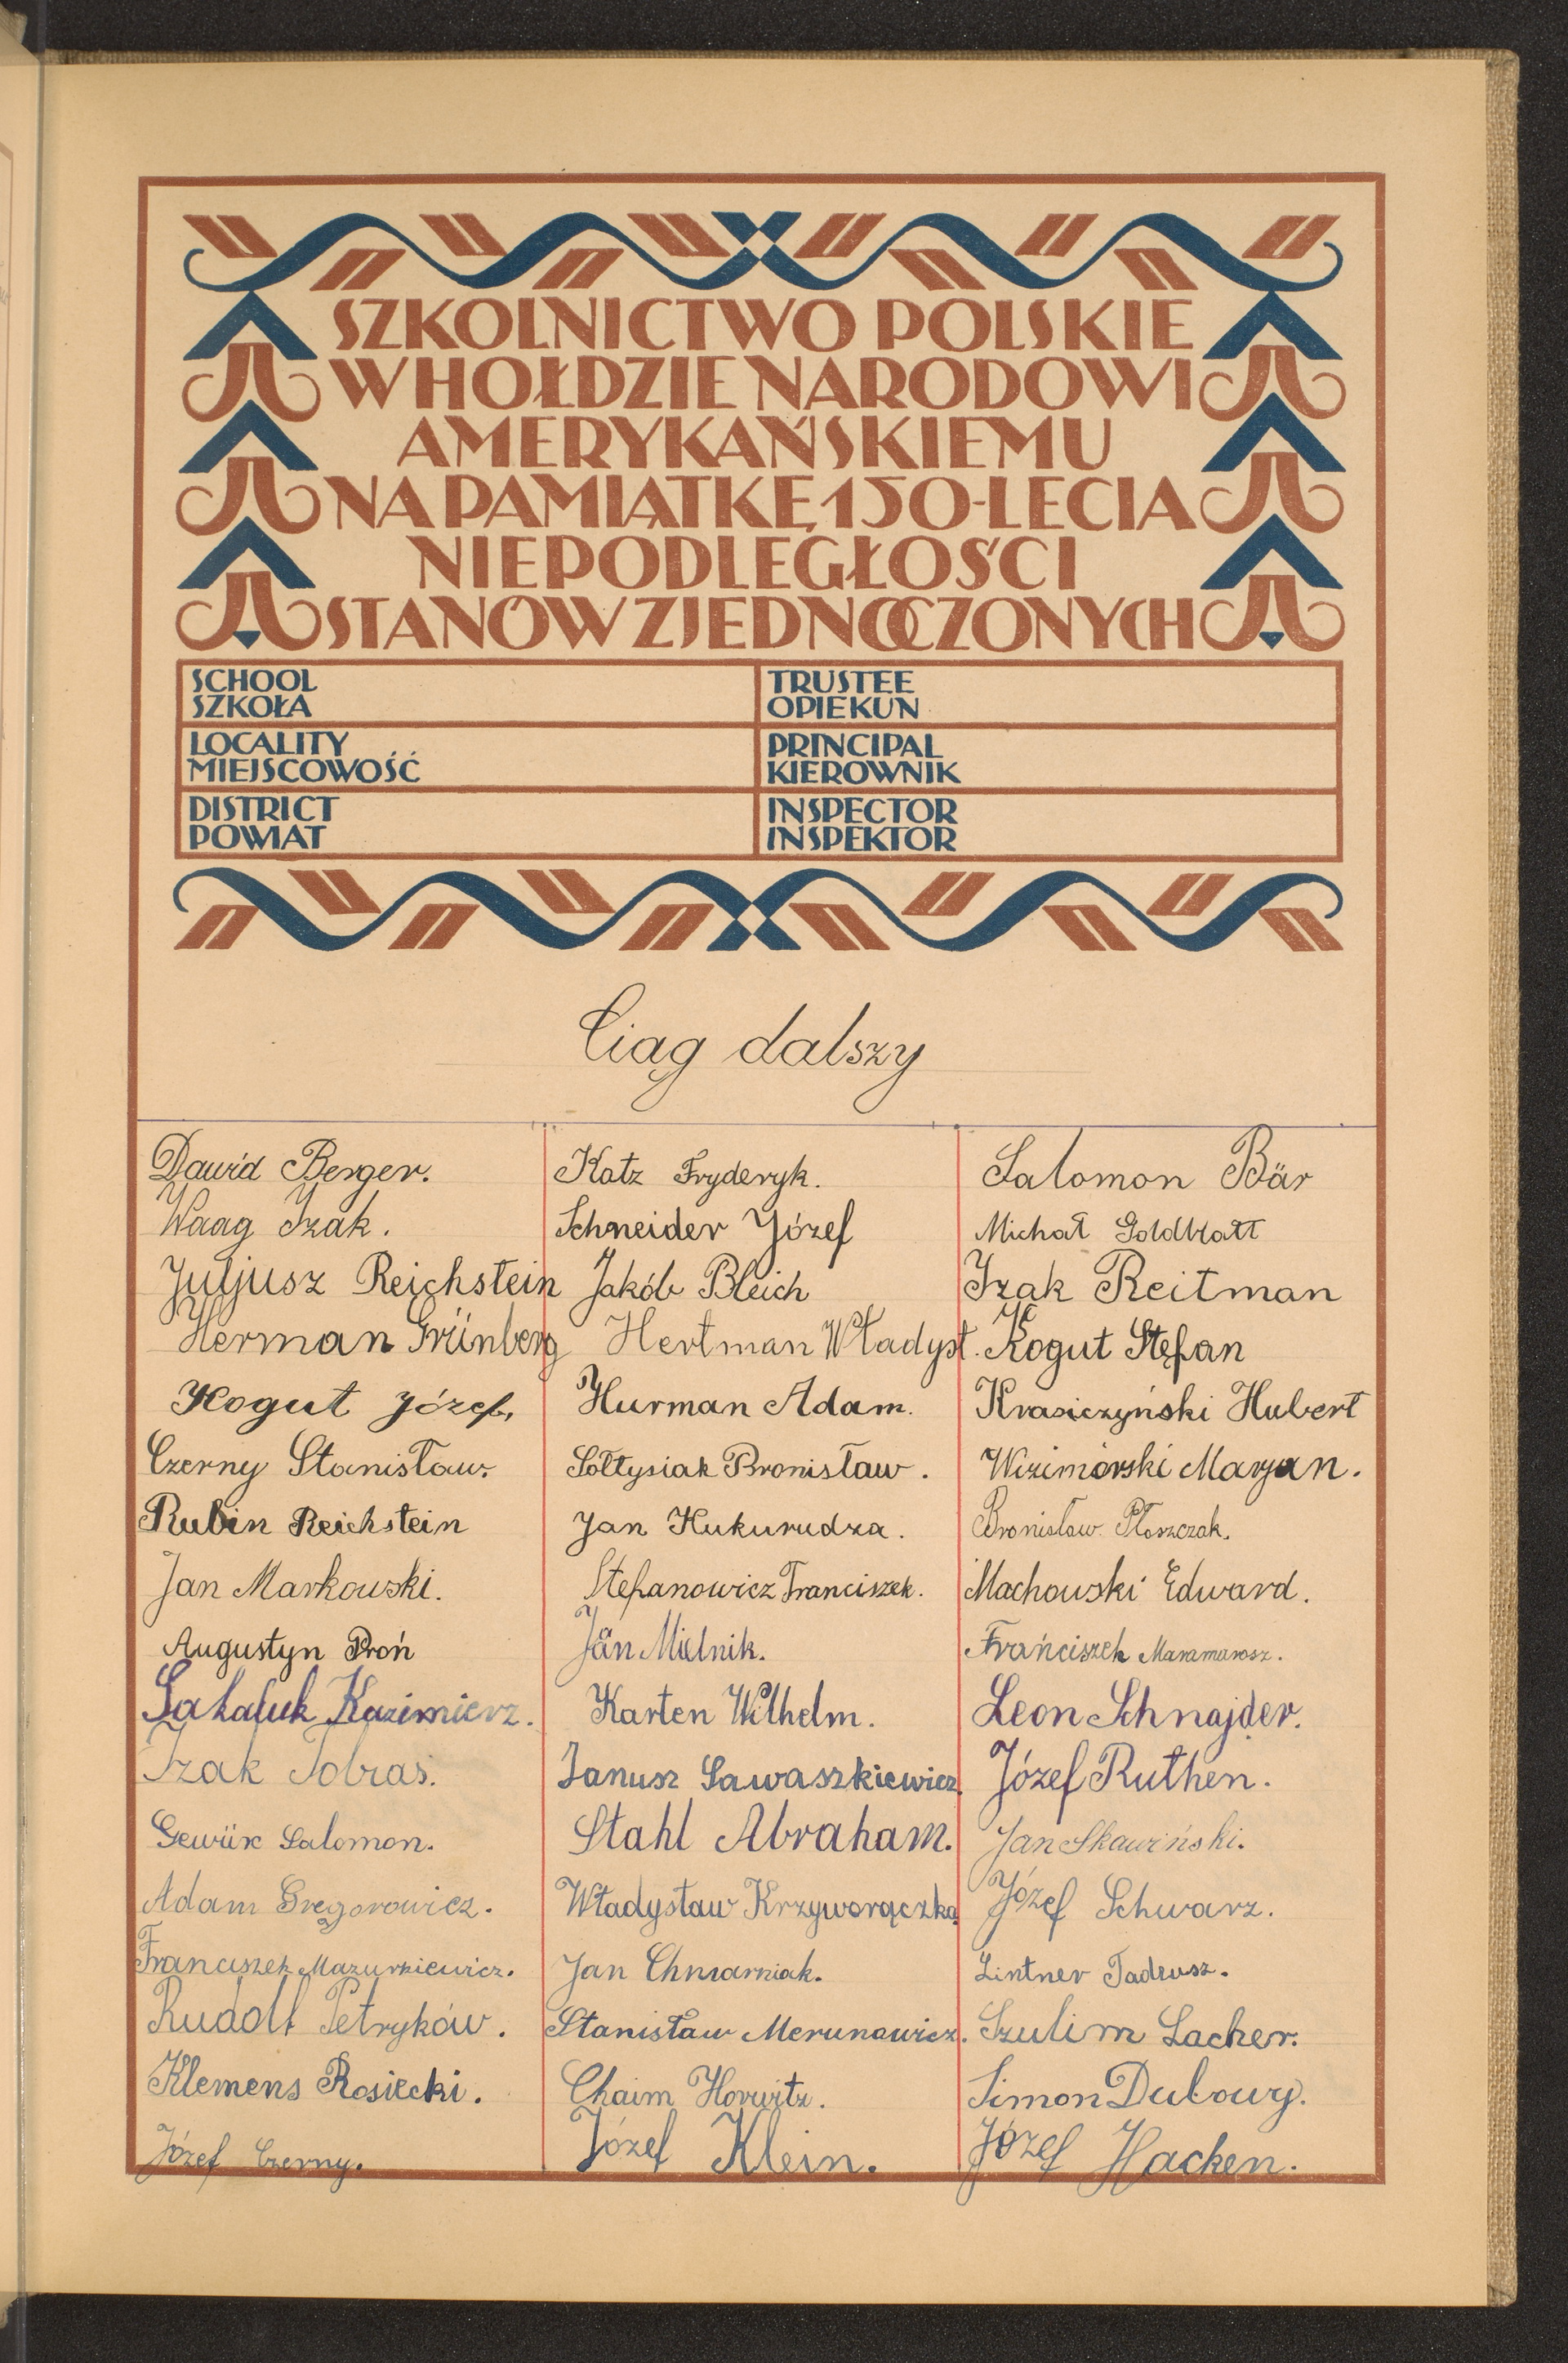 SZKOLNICTWO POLSKIE
W HOŁDZIE NARODOWI
AMERYKAŃSKIEMU
NA PAMIĄTKĘ 150-LECIA
NIEPODLEGŁOŚCI
STANÓW ZJEDNOCZONYCH
SCHOOL
SZKOŁA
TRUSTEE
OPIEKUN
LOCALITY
MIEJSCOWOŚĆ
PRINCIPAL
KIEROWNIK
DISTRICT
POWIAT
INSPECTOR
INSPEKTOR
Ciag dalszy
Dawid Berger.
Waag Izak.
Juljusz Reichstein
Herman Grünberg
Kogut Józef,
Czerny Stanisław.
Rubin Reichstein
Jan Markowski.
Augustyn Proń
Sahajuk Kazimierz.
Izak Tobias.
Gewürz Salomon.
Adam Gregorowicz.
Franciszek Mazurkiewicz.
Rudolf Petryków.
Klemens Rosiecki.
Józef Czerny.
Katz Fryderyk.
Schneider Józef
Jakób Bleich
Hertman Władysł.
Hurman Adam.
Sołtysiak Bronisław.
Jan Kukurudza.
Stefanowicz Franciszek.
Jan Mielnik.
Karten Wilhelm.
Janusz Sawaszkiewicz.
Stahl Abraham.
Władysław Krzyworączka
Jan Chmarniak.
Stanisław Merunowicz.
Chaim Horwitz.
Józef Klein.
Salomon Bär
Michał Goldblatt
Izak Reitman
Kogut Stefan
Krasiczyński Hubert
Wizimirski Marjan.
Bronisław Płoszczak.
Machowski Edward.
Franciszek Maramarosz.
Leon Schnajder.
Józef Ruthen.
Jan Skawiński.
Józef Schwarz.
Lintner Tadeusz.
Szulim Lacher.
Simon Dubowy.
Józef Hacken.